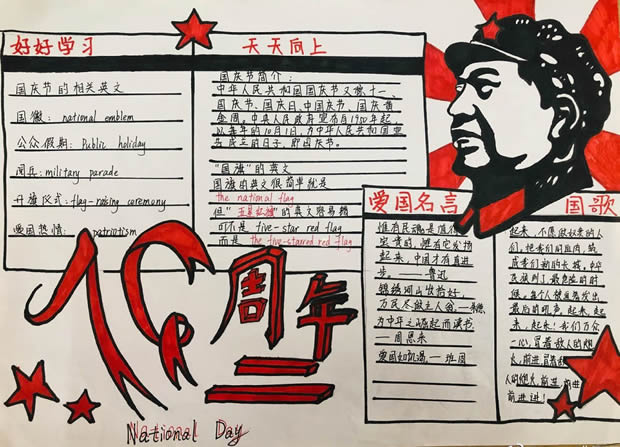 好好学习
国庆节的相关英文
国徽: national emblem
公众假期: Public holiday
阅兵: military parade
升旗仪式: flag-raising ceremony
爱国热情: patriotism
天天向上
国庆节简介:
中华人民共和国国庆节又称十一、
国庆节、国庆日、中国国庆节、国庆黄
金周。中央人民政府宣布自1950年起,
以每年的10月1日,为中华人民共和国宣
告成立的日子,即国庆节。
"国旗"的英文
国旗的英文很简单就是
the national flag
但"五星红旗"的英文容易错
可不是 five-star red flag
而是 the five-starred red flag
爱国名言
惟有民魂是值得
宝贵的,惟有它发扬
起来,中国才有真进
步。——鲁迅
锦绣河山收拾好,
万民尽做主人翁。
为中华之崛起而读书
—周恩来
爱国如饥渴。—班固
国歌
起来,不愿做奴隶的人
们,把我们的血肉,筑
成我们新的长城。中华
民族到了最危险的时
候,每个人被迫着发出
最后的吼声。起来,起
来,起来!我们万众
一心,冒着敌人的炮
火,前进,冒着敌
人的炮火,前进,前进
前进进!
70周年
National Day